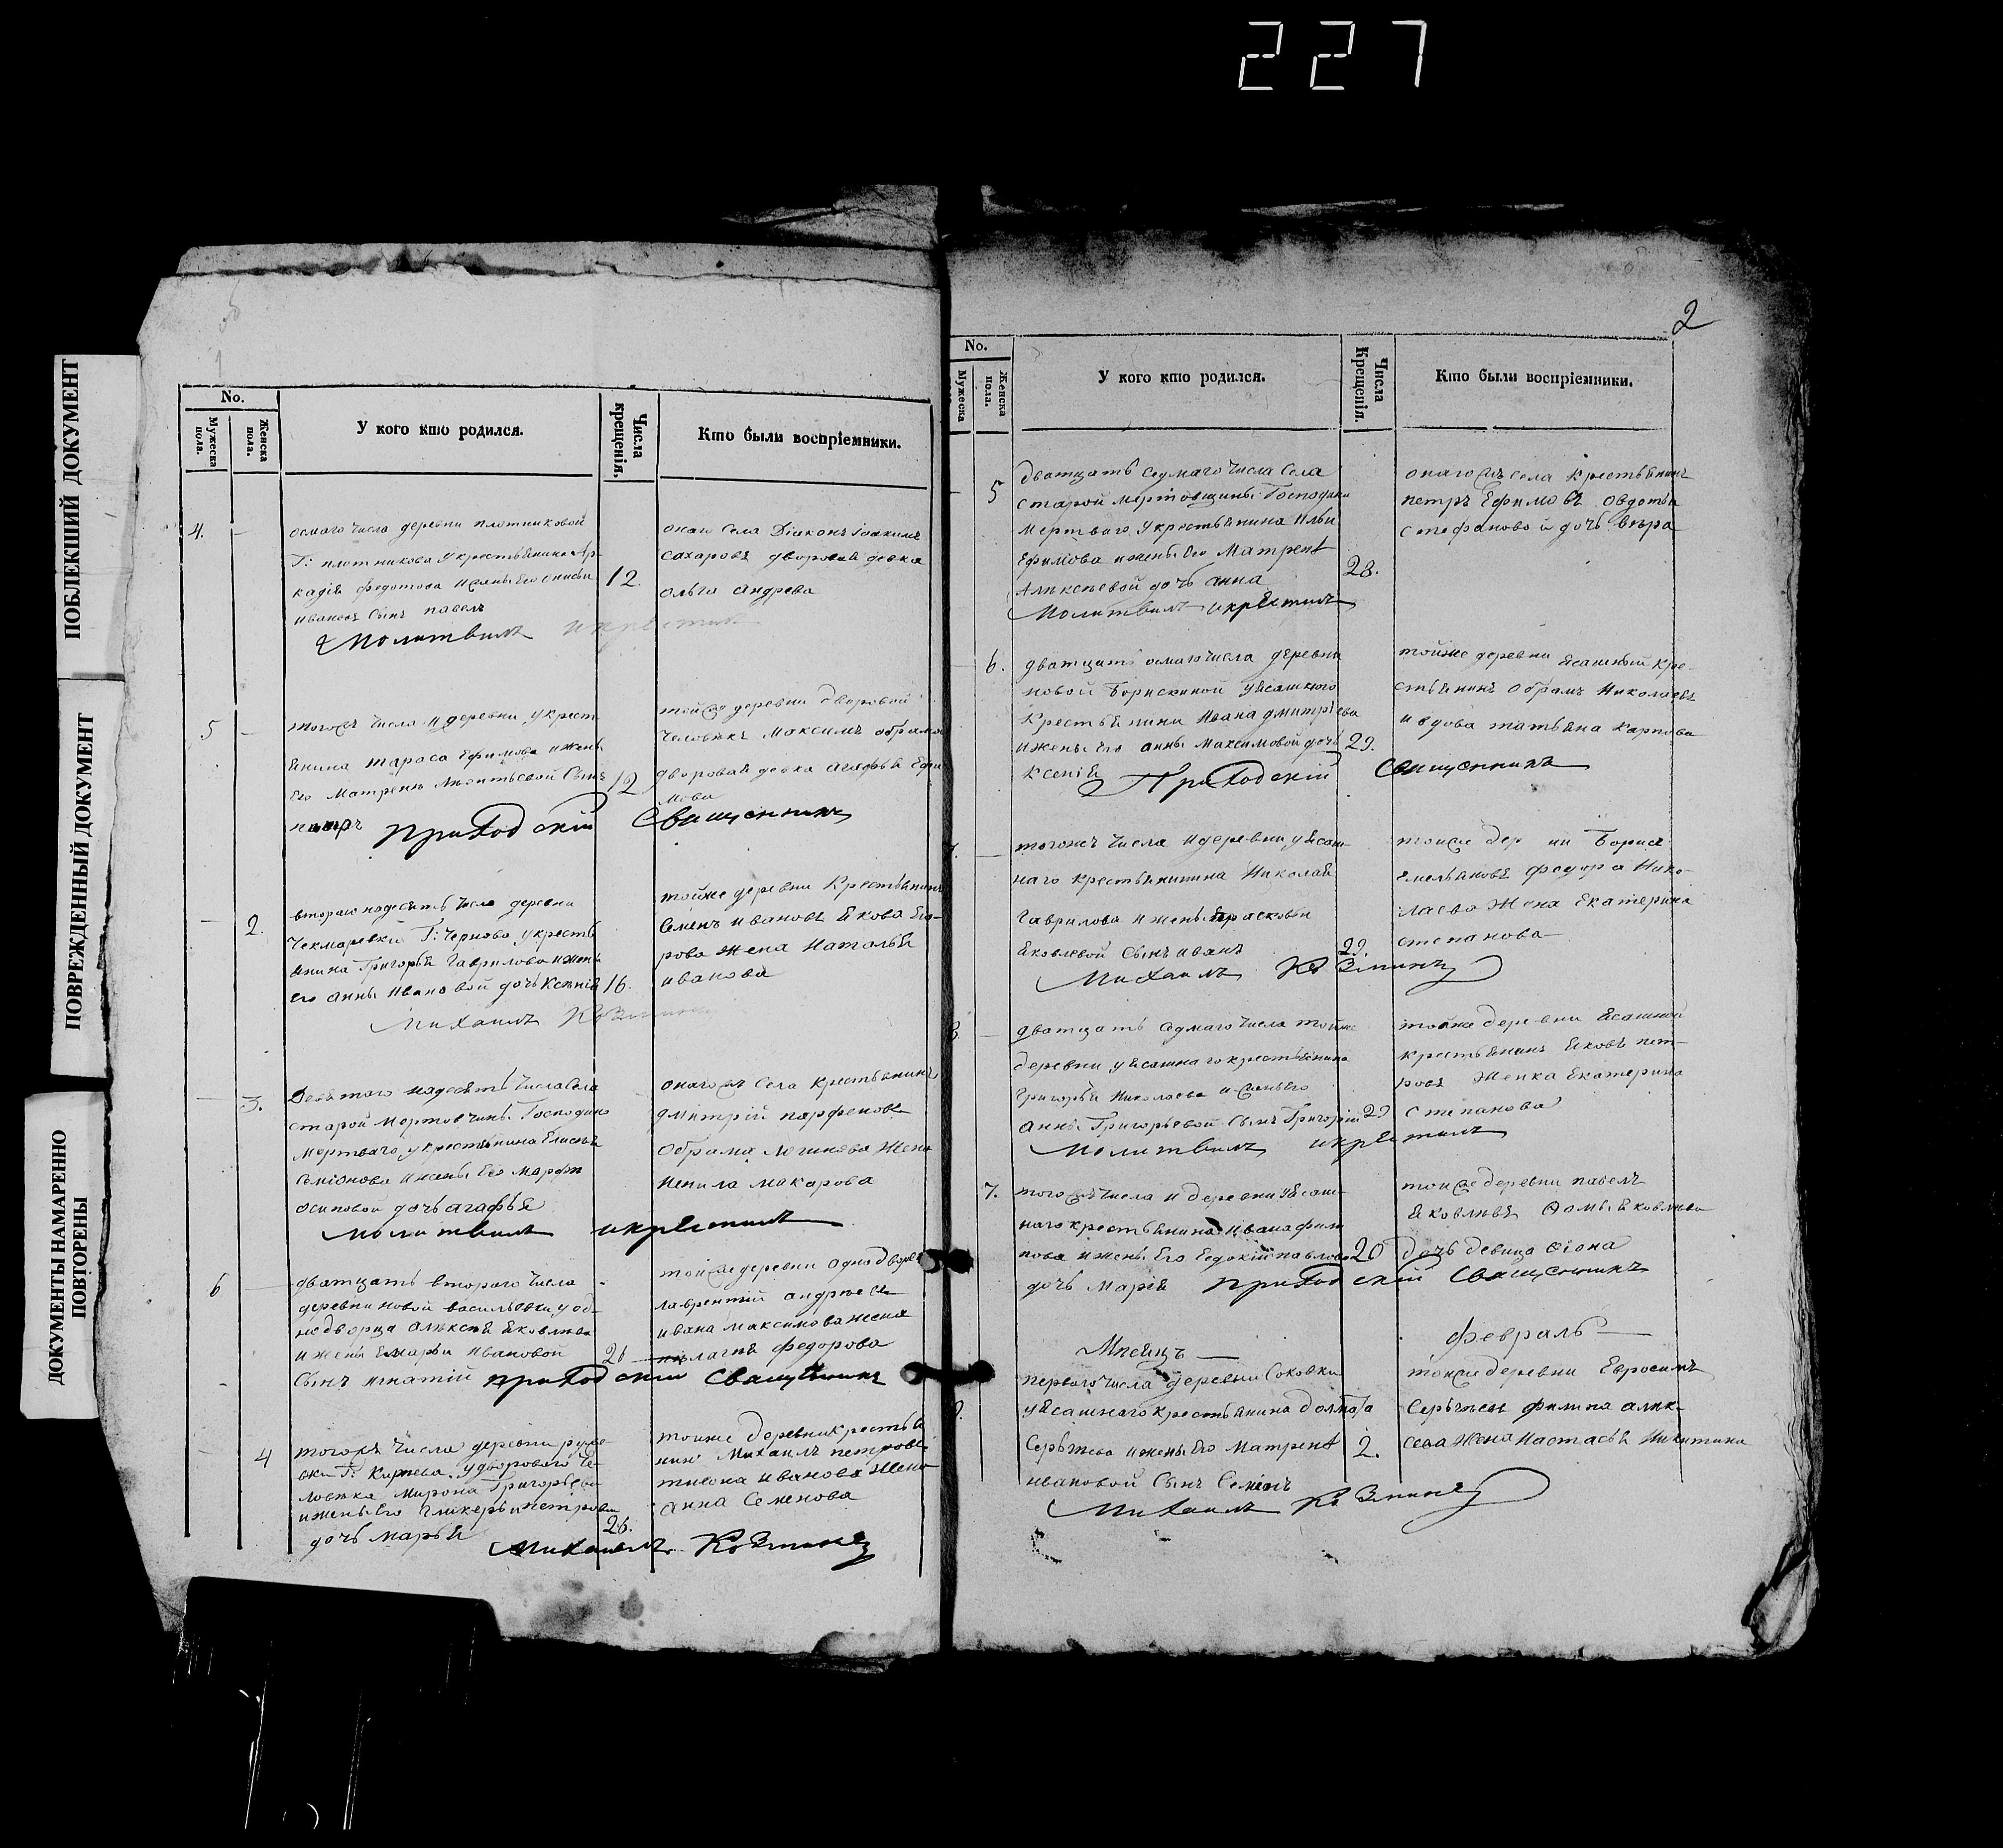 227
ПОБЛЕКШИЙ ДОКУМЕНТ
ПОВРЕЖДЕННЫЙ ДОКУМЕНТ
ДОКУМЕНТЫ НАМАРЕННО
ПОВТОРЕНЫ
No.
Мужеска пола.
Женска пола.
У кого кто родился.
Числа крещенія.
Кто были воспріемники.
4.
осмаго числа деревни плотниковой
Г: плотникова у крестьянина Ар-
кадія Федотова и жены Его
ивановой Сынъ павелъ
12.
Села Діаконъ Іоакимъ
сахаровъ дворовая девка
ольга андрева
Молитвилъ и крестилъ
5
тогожъ числа и деревни у крест-
янина тараса Ефимова и жены
Его Матрены Сынъ
петръ
12
тойже деревни дворовой
человекъ Максимъ
дворовая девка агафья Ефи-
мова
приходскій Священникъ
2.
второго надесять числа деревни
Чекмаревки Г: Чернова у кресть-
янина Григорья Гаврилова и жены
Его анны ивановой дочь Ксенія
16.
тойже деревни Крестьянинъ
Семенъ ивановъ Якова Его-
рова жена Наталья
иванова
Михаилъ
3.
Девятого надесять числа Села
старой Мертовчины Господина
Мертваго у крестьянина Елисея
Семіонова и жены Его марфы
осиповой дочь агафья
оногожъ Села крестьянинъ
дмитрій парфеновъ
обрама логинова жена
Ненила макарова
молитвилъ и крестилъ
6
дватцать втораго числа
деревни новой васильовки у од-
нодворца алексея Яковлева
и жены Марьи ивановой
Сынъ игнатій
26
тойже деревни однодворецъ
лаврентій андреевъ
ивана максимова жена
пилагея федорова
приходскій Священникъ
4
тогожъ числа деревни
Г: у двороваго че-
ловека мирона Григорьева
и жены Его гликерьи петровой
дочь Марья
26.
тойже деревни крестья-
нинъ Михаилъ петровъ
иванова жена
анна Семенова
Михаилъ
2
No.
Мужеска
Женска пола.
У кого кто родился.
Числа Крещенія.
Кто были воспріемники.
5
дватцать седмаго числа Села
старой мертовщины Господина
Мертваго у крестьянина Ильи
Ефимова и жены Его Матрены
Алексеевой дочь анна
28.
оногожъ села Крестьянинъ
петръ Ефимовъ овдотьи
стефановой дочь вера
Молитвилъ и крестилъ
6.
дватцать осмаго числа деревни
новой Борискиной у ясашного
Крестьянина Ивана дмитріева
и жены Его анны Максимовой дочь
Ксенія
29.
тойже деревни ясашный кре-
стьянинъ обрамъ Николаевъ
и вдова татьяна Карпова
Приходскій Священникъ
7.
тогожъ числа и деревни у ясаш-
наго крестьянина Николая
Гаврилова и жены прасковьи
Яковлевой Сынъ иванъ
29.
тойже дер ни Борисъ
Емельяновъ федора Нико-
лаева Жена Екатерина
степанова
Михаилъ
8
дватцать седмаго числа тойже
деревни у ясашнаго крестьянина
Григорья Николаева и жены Его
анны Григорьевой Сынъ Григорій
29
тойже деревни Ясашной
крестьянинъ Яковъ пет-
ровъ Женка Екатерина
Степанова
Молитвилъ и крестилъ
7.
тогожъ числа и деревни у ясаш-
наго крестьянина ивана фили-
пова и жены Его Евдокіи павловой
дочь Марія
тойже деревни павелъ
Яковлевъ Ѳомы Яковлева
дочь девица
приходскій Священникъ
Месяцъ февраль
перваго числа деревни Соковки
у ясашнаго крестьянина
Сергеева и жены Его Матрены
ивановой Сынъ Семенъ
2.
тойже деревни Евросимъ
Сергеевъ филипа алек-
сева Жена Настасья Никитина
Михаилъ